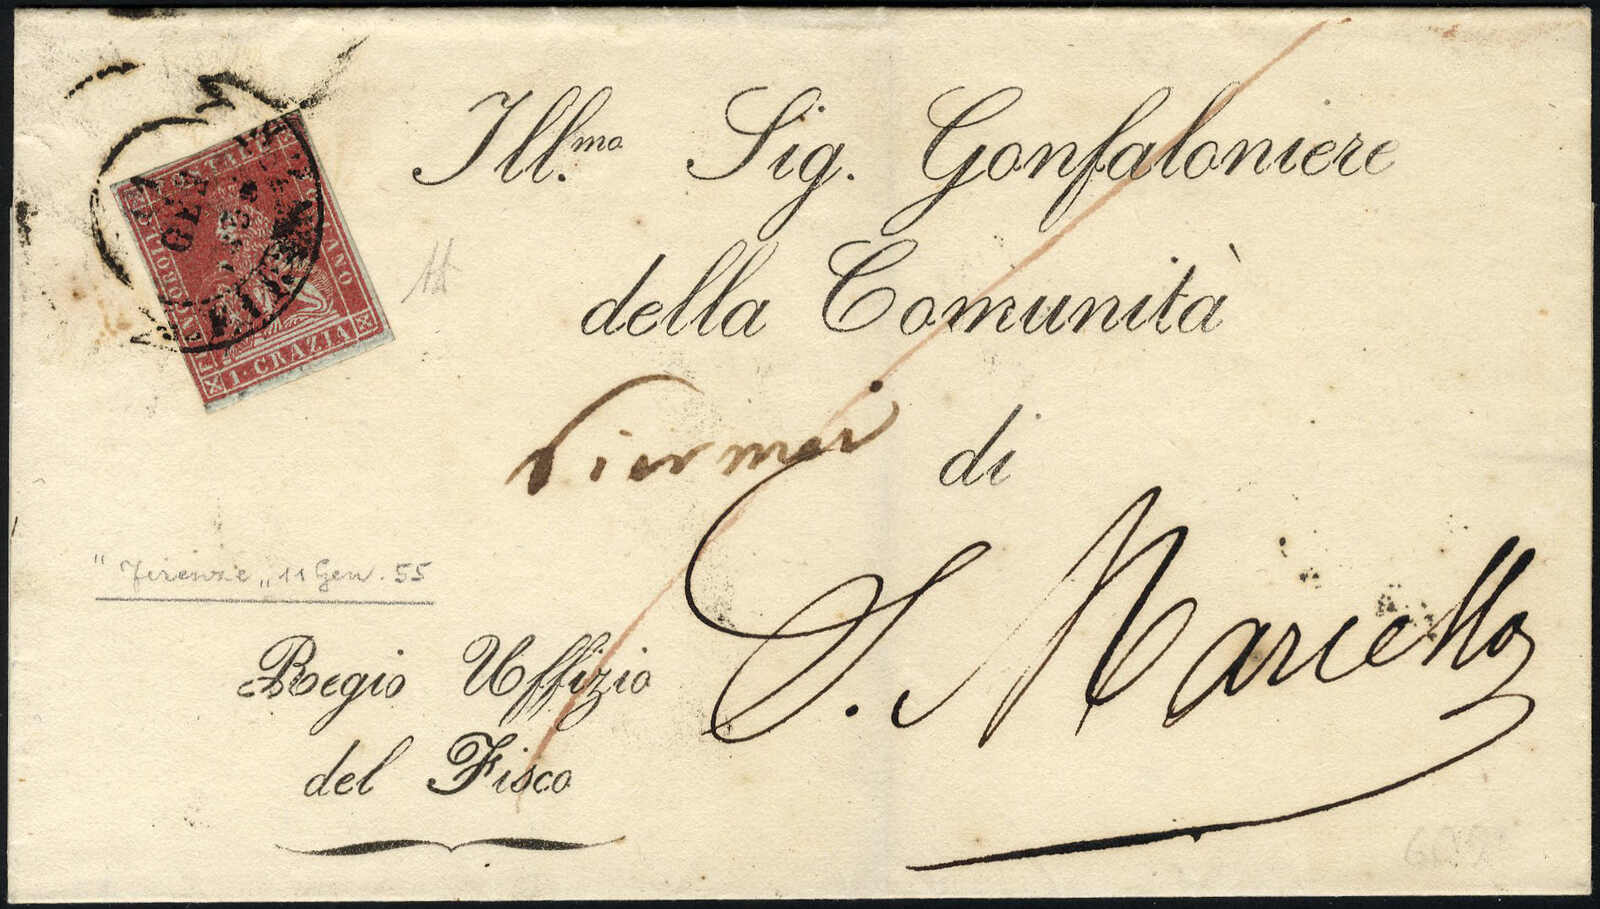 Ill.mo Sig. Gonfaloniere
della Comunità
di
S. Marcello
"Firenze" 11 Gen. 55
Regio Uffizio
del Fisco
FRANCOBOLLO POSTALE TOSCANO
1 · CRAZIA
GEN
FIRENZE